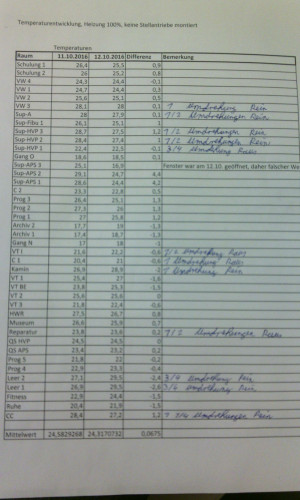 Temperaturentwicklung, Heizung 100%, keine Stellantriebe montiert
Temperaturen
Raum 11.10.2016 12.10.2016 Differenz Bemerkung
Schulung 1 26,4 25,5 0,9
Schulung 2 26 25,2 0,8
VW 4 24,3 24,4 -0,1
VW 1 24,7 24,4 0,3
VW 2 25,6 25,1 0,5
VW 3 28,1 28 0,1 1 Umdrehung Rein
Sup-A 28 27,9 0,1 1/2 Umdrehungen Rein
Sup-Fibu 1 26,1 25,1 1
Sup-HVP 3 28,7 27,5 1,2 1/2 Umdrehungen Rein
Sup-HVP 2 28,4 27,4 1 1/2 Umdrehungen Rein
Sup-HVP 1 22,4 22,5 -0,1 3/4 Umdrehung
Gang D 18,6 18,5 0,1
Sup-APS 3 25,1 Fenster war am 12.10. geöffnet, daher falscher We
Sup-APS 2 29,1 24,7 4,4
Sup-APS 1 28,6 24,4 4,2
C 2 23,3 22,8 0,5
Prog 3 26,4 25,1 1,3
Prog 2 27,3 26 1,3
Prog 1 27 25,8 1,2
Archiv 2 17,7 19 -1,3
Archiv 1 17,4 18,7 -1,3
Gang N 17 18 -1
VT I 21,6 22,2 -0,6 1/2 Umdrehung
C 1 20,4 21 -0,6 1 Umdrehung
Kamin 26,9 28,9 -2 1 Umdrehung Rein
VT 1 25,4 27 -1,6
VT BE 23,8 25,3 -1,5
VT 2 25,6 25,6 0
VT 3 21,8 22,4 -0,6
HWR 27,5 26,7 0,8
Museum 26,6 25,9 0,7
Reparatur 23,8 23,6 0,2 1/2 Umdrehungen Rein
QS HVP 24,5 24,5 0
QS APS 23,4 23,2 0,2
Prog 5 21,8 22 -0,2
Prog 4 22,9 23,3 -0,4
Leer 2 27,1 29,5 -2,4 3/4 Umdrehung Rein
Leer 1 26,9 29,5 -2,6 3/4 Umdrehung Rein
Fitness 22,9 24,4 -1,5
Ruhe 20,4 21,9 -1,5
CC 28,4 27,2 1,2 1 3/4 Umdrehungen Rein
Mittelwert 24,5829268 24,3170732 0,0675